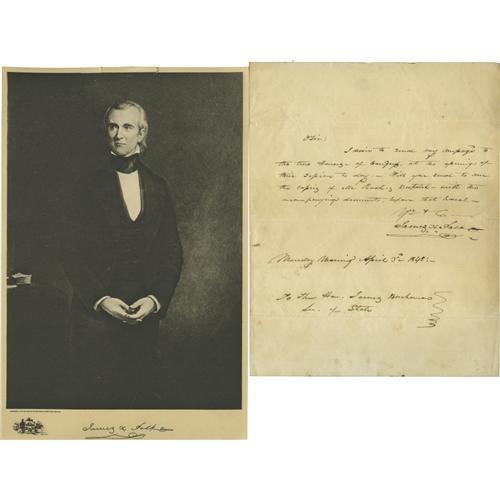 James K Polk
Sir:
I desire to send my message to
the two Houses of Congress, at the opening of
their Session to day:- Will you send to me
the copies of Mr Rush's Despatch - with the
accompanying documents, before that hour:-
James K Polk
Monday Morning April 3d 1848:-
To the Hon. James Buchanan
Sec. of State